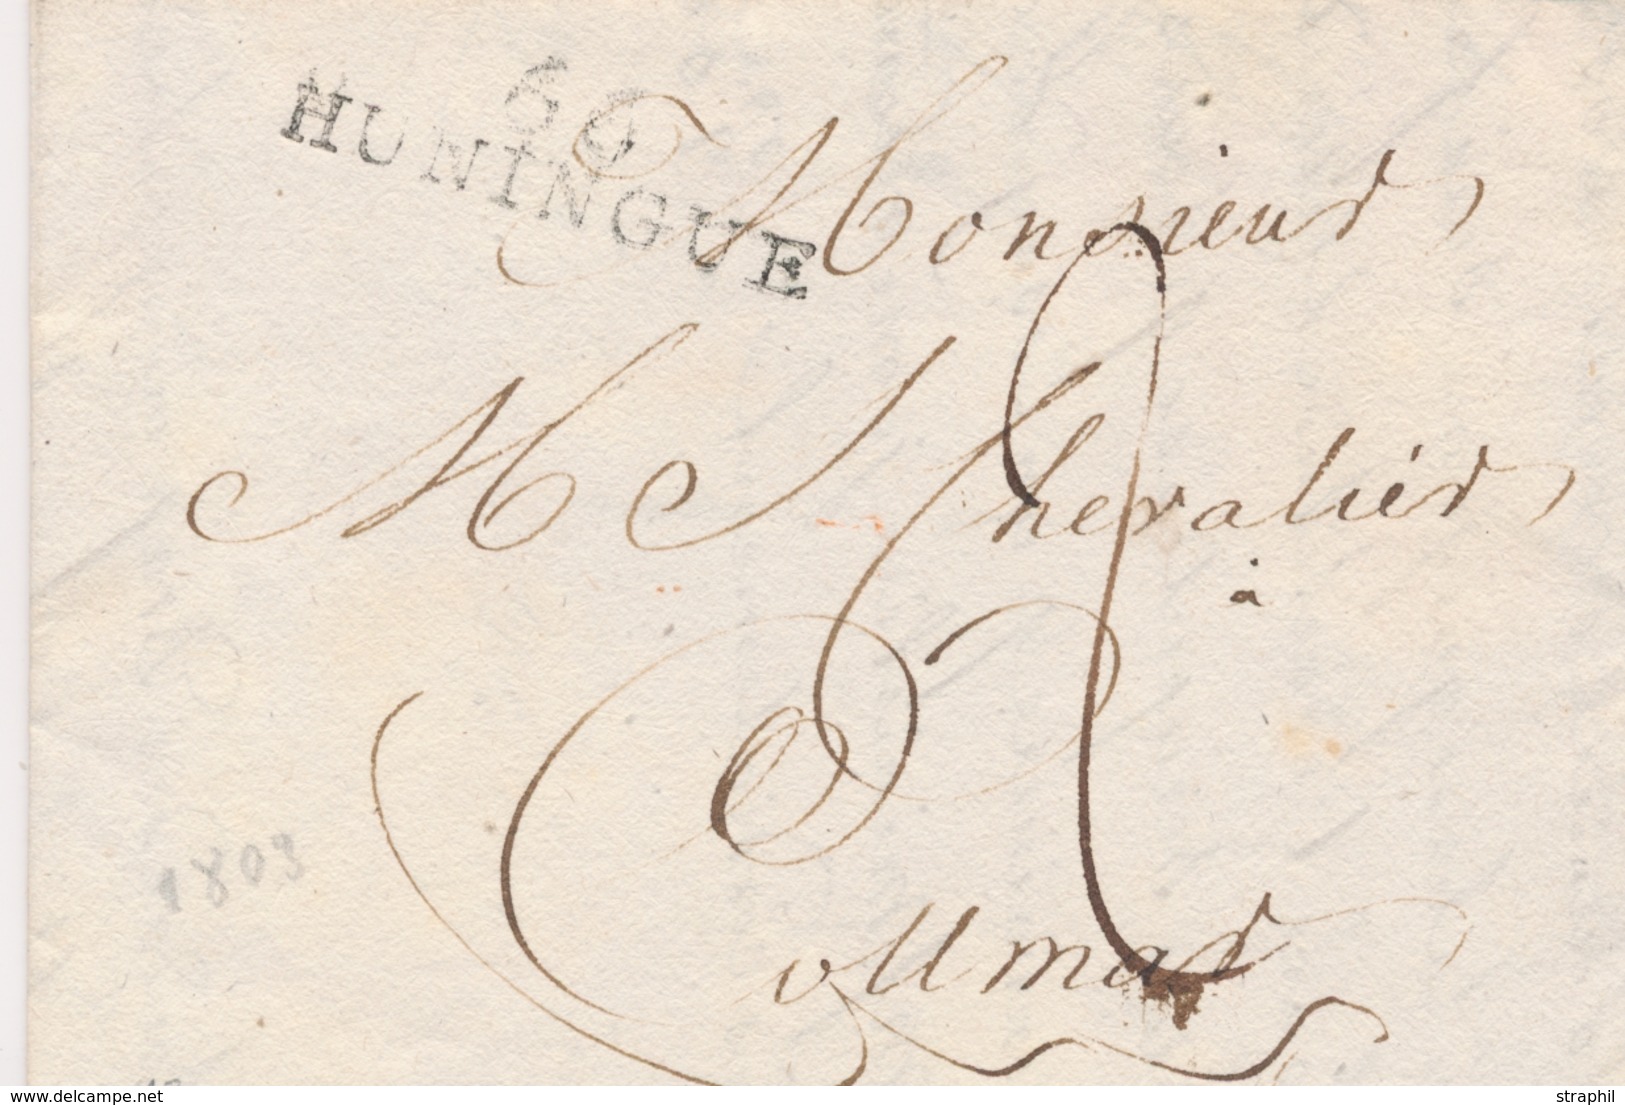 66
HUNINGUE
Monsieur
M J Chevalier
à
Collmar
2
1803
delcampe.net
straphil